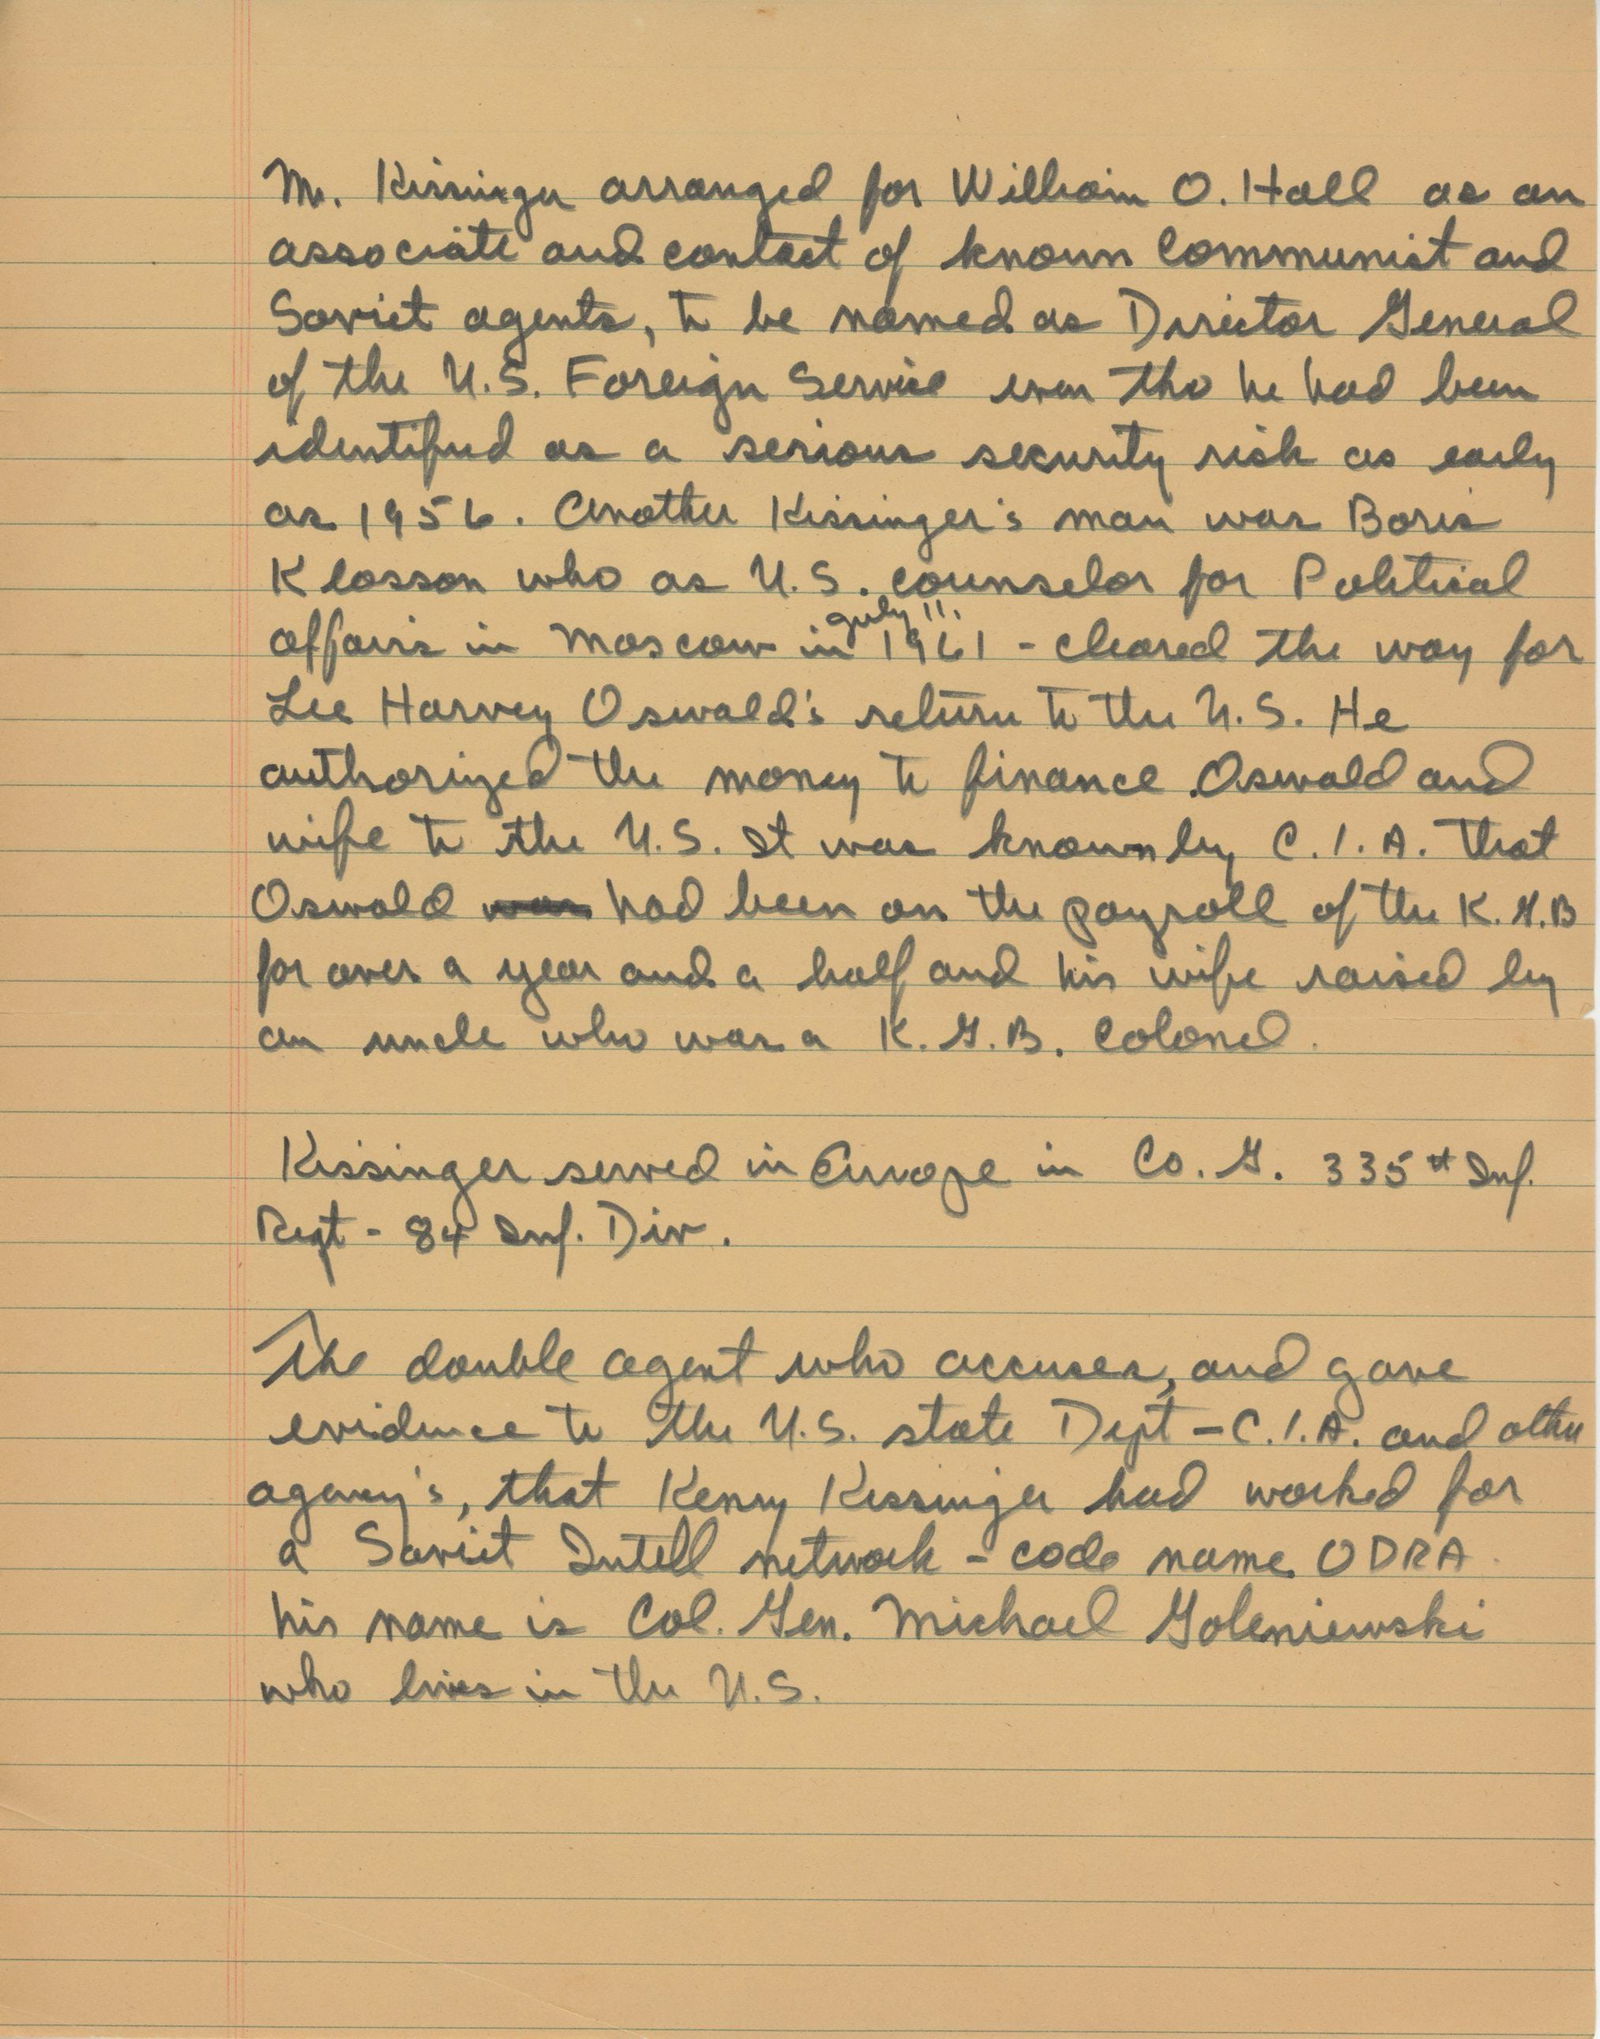 Mr. Kissinger arranged for William O. Hall as an
associate and contact of known Communist and
Soviet agents, to be named as Director General
of the U.S. Foreign Service even tho he had been
identified as a serious security risk as early
as 1956. Another Kissinger's man was Boris
Klosson who as U.S. counselor for Political
affairs in Moscow in July 11. 1961 - cleared the way for
Lee Harvey Oswald's return to the U.S. He
authorized the money to finance Oswald and
wife to the U.S. It was known by C.I.A. that
Oswald was had been on the payroll of the K.G.B
for over a year and a half and his wife raised by
an uncle who was a K.G.B. Colonel.
Kissinger served in Europe in Co. G. 335th Inf.
Regt - 84 Inf. Div.
The double agent who accuses, and gave
evidence to the U.S. state Dept - C.I.A. and other
agency's, that Kenry Kissinger had worked for
a Soviet Intell network - code name ODRA.
his name is Col. Gen. Michael Goleniewski
who lives in the U.S.